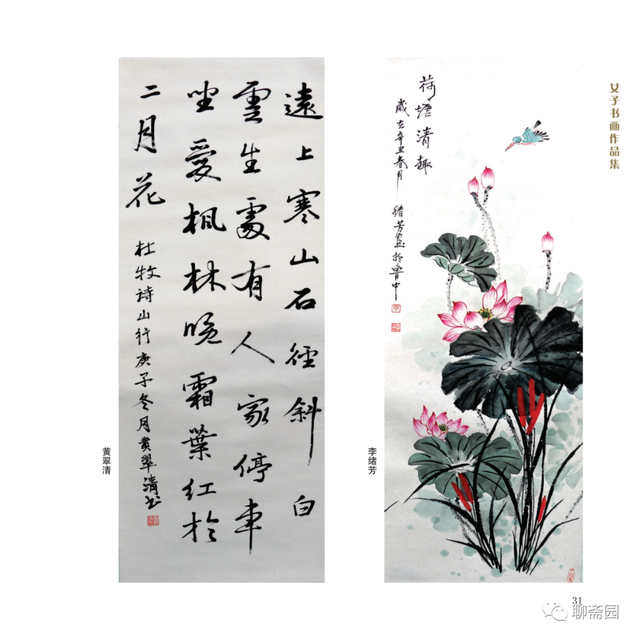 遠上寒山石徑斜白
雲生處有人家停車
坐愛楓林晚霜葉紅於
二月花
杜牧诗山行庚子冬月黄翠清书
黄翠清
女子书画作品集
荷塘清趣
歲在辛丑春月
绪芳画於鲁中
李绪芳
31
聊斋园